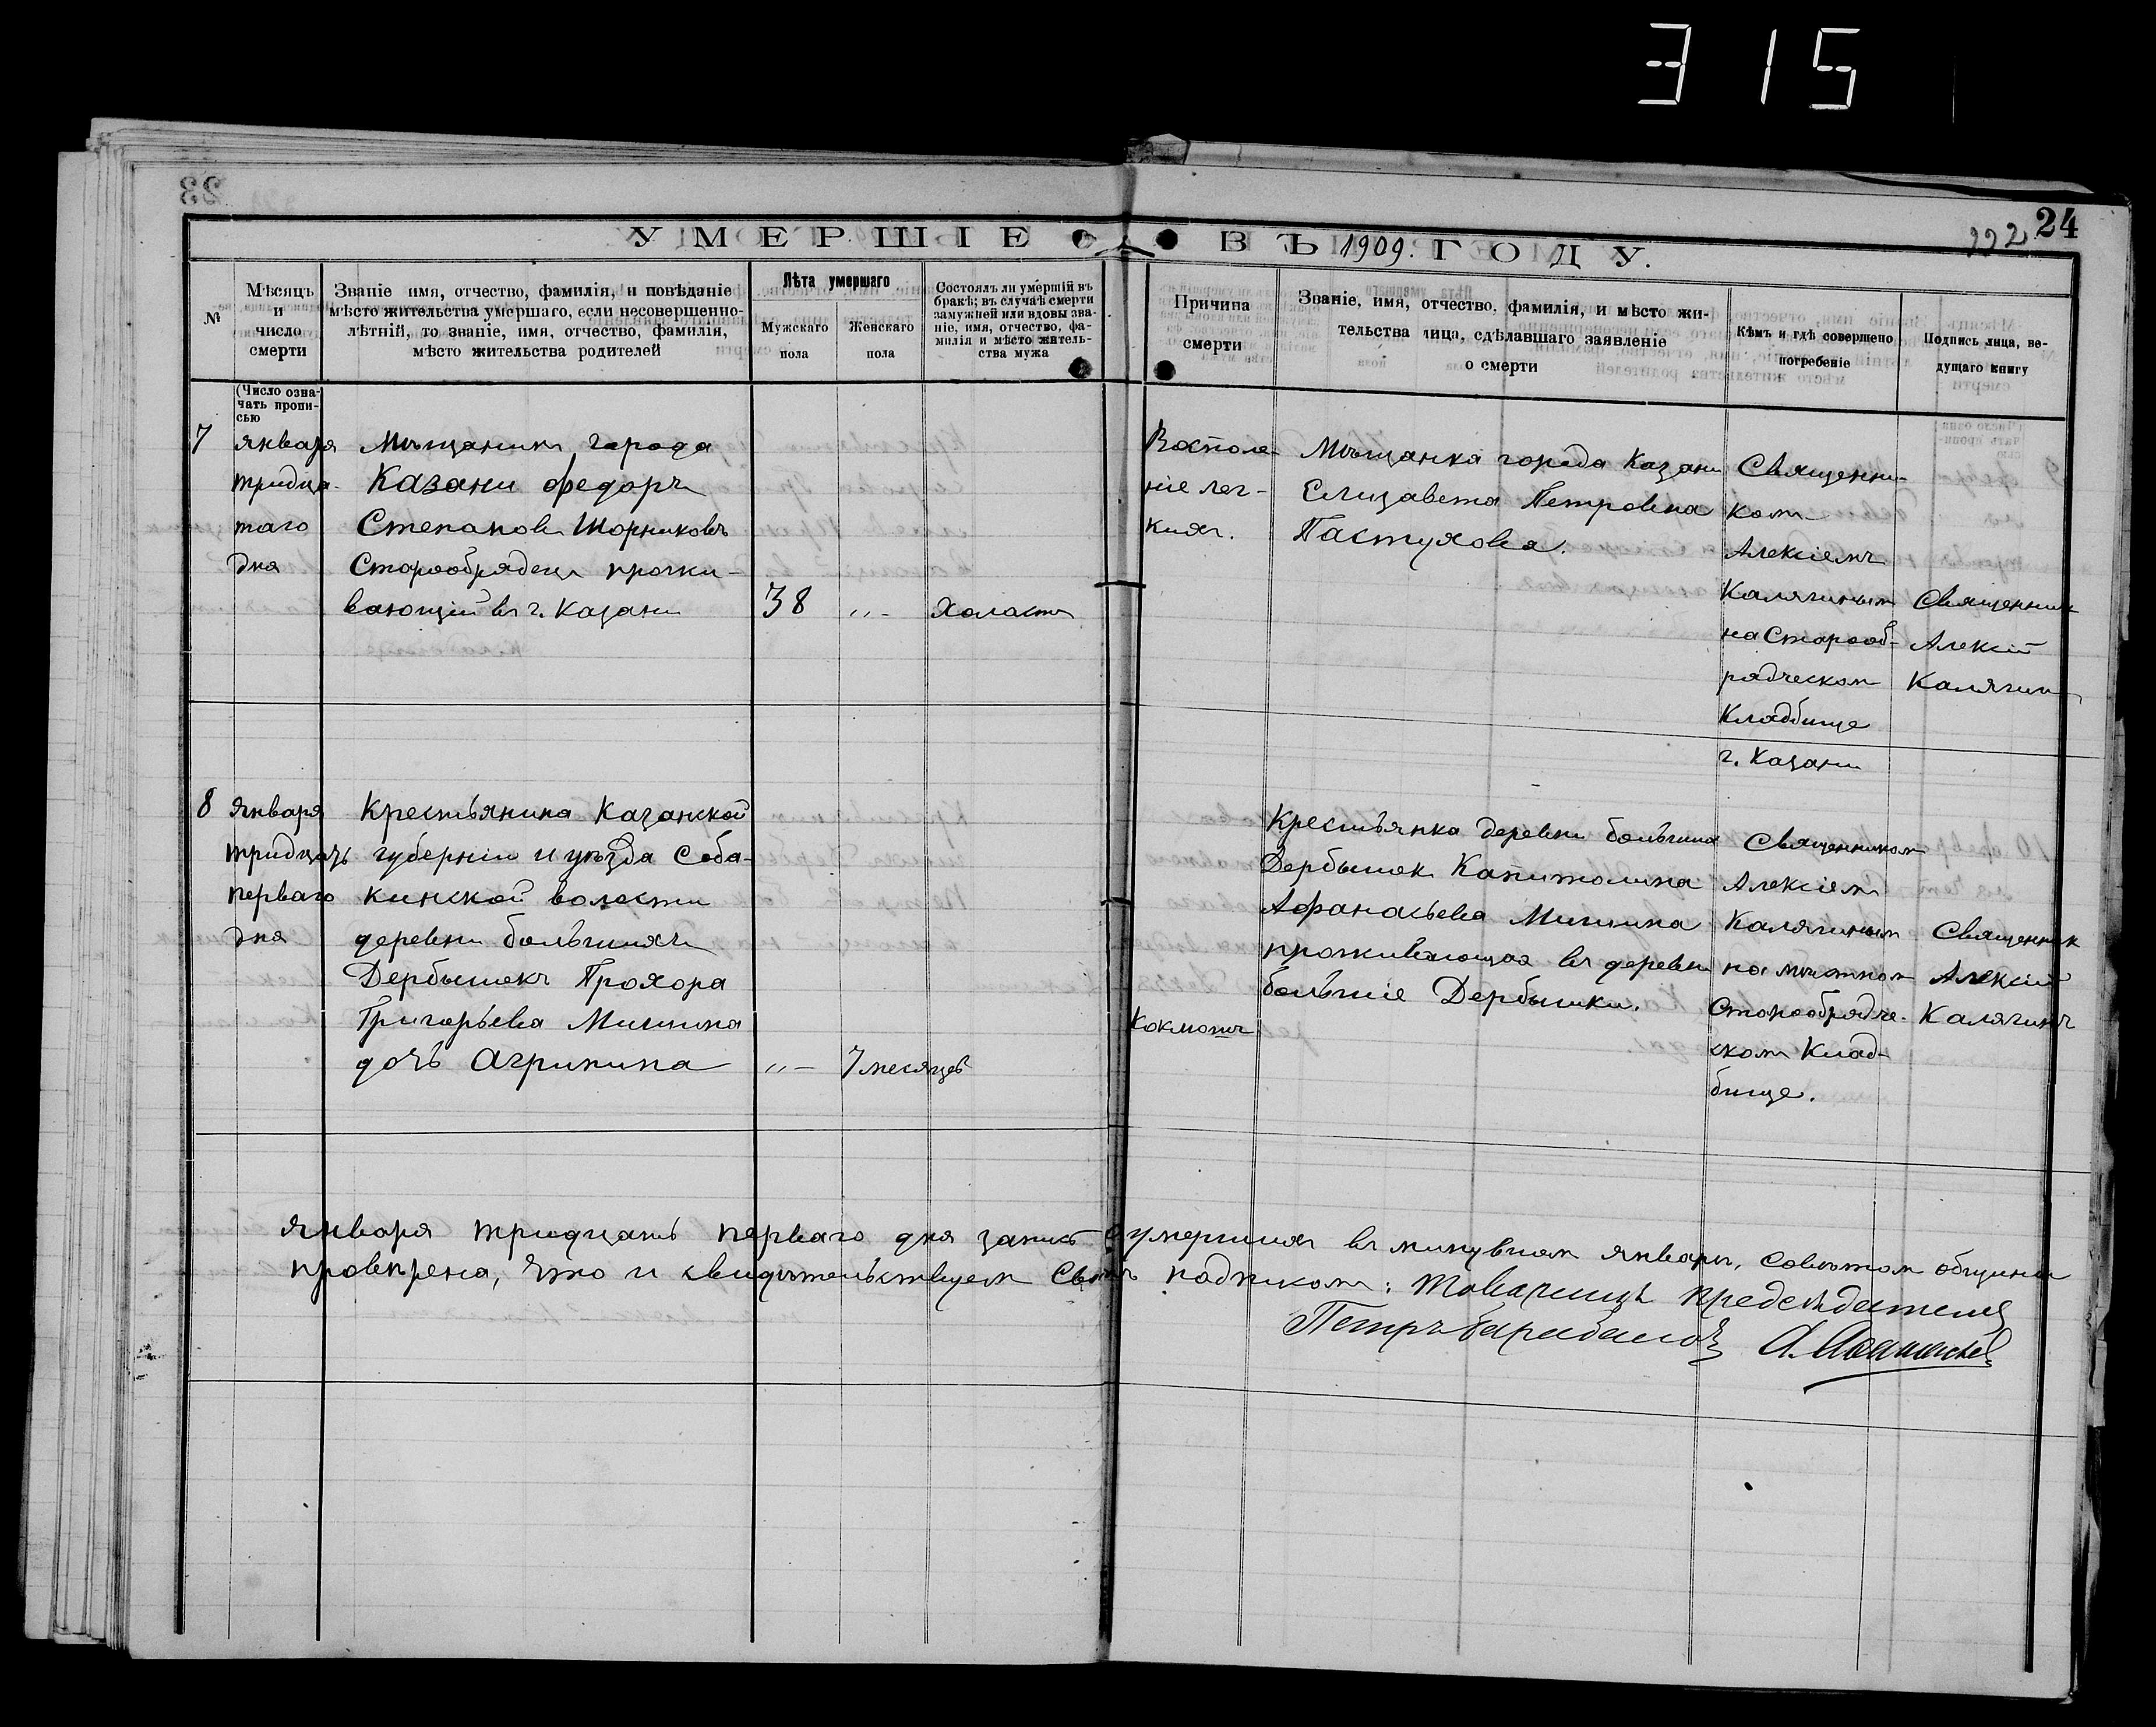 315
24
222
УМЕРШІЕ ВЪ 1909. ГОДУ.
№
Мѣсяцъ
и
число
смерти
Званіе имя, отчество, фамилія, и повѣданіе
мѣсто жительства умершаго, если несовершенно-
лѣтній, то званіе, имя, отчество, фамилія,
мѣсто жительства родителей
Лѣта умершаго
Мужскаго
пола
Женскаго
пола
Состоялъ ли умершій въ
бракѣ; въ случаѣ смерти
замужней или вдовы зва-
ніе, имя, отчество, фа-
милія и мѣсто житель-
ства мужа
Причина
смерти
Званіе, имя, отчество, фамилія, и мѣсто жи-
тельства лица, сдѣлавшаго заявленіе
о смерти
Кѣмъ и гдѣ совершено
погребеніе
Подпись лица, ве-
дущаго книгу
(Число озна-
чать пропи-
сью
7
января
тридца-
таго
дня
Мѣщанинъ города
Казани Федоръ
Степановъ Шорниковъ
Старообрядецъ прожи-
вающій въ г. Казани
38
"-
Холостъ
Воспале-
ніе лег-
кихъ.
Мѣщанка города Казани
Елизавета Петровна
Пастухова.
Священни-
комъ
Алексіемъ
Калягинымъ
на Старооб-
рядческомъ
Кладбище
г. Казани
Священникъ
Алексій
Калягинъ
8
Января
тридцать
перваго
дня
Крестьянина Казанской
губерніи и уѣзда Соба-
кинской волости
деревни большихъ
Дербышекъ Прохора
Григорьева Мишина
дочь Агрипина
"-
7 месяцев
Коклюшъ
Крестьянка деревни большихъ
Дербышек Капитолина
Афанасьева Мишина
проживающая въ деревни
большіе Дербышки.
Священникомъ
Алексіемъ
Калягинымъ
на мѣстномъ
Старообрядче-
скомъ Клад-
бище.
Священник
Алексій
Калягинъ
Января тридцать перваго дня запись умершихъ въ минувшемъ январѣ, совѣтомъ общины
провѣрена, что и свидѣтельствуемъ подписом: Товарищъ Председателя
Петръ Барабановъ А. Афанасьев